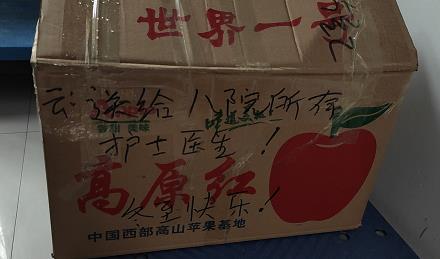 世界一号
云：送给八院所有
香甜 美味
护士医生！
高原红
冬至快乐！
中国西部高山苹果基地